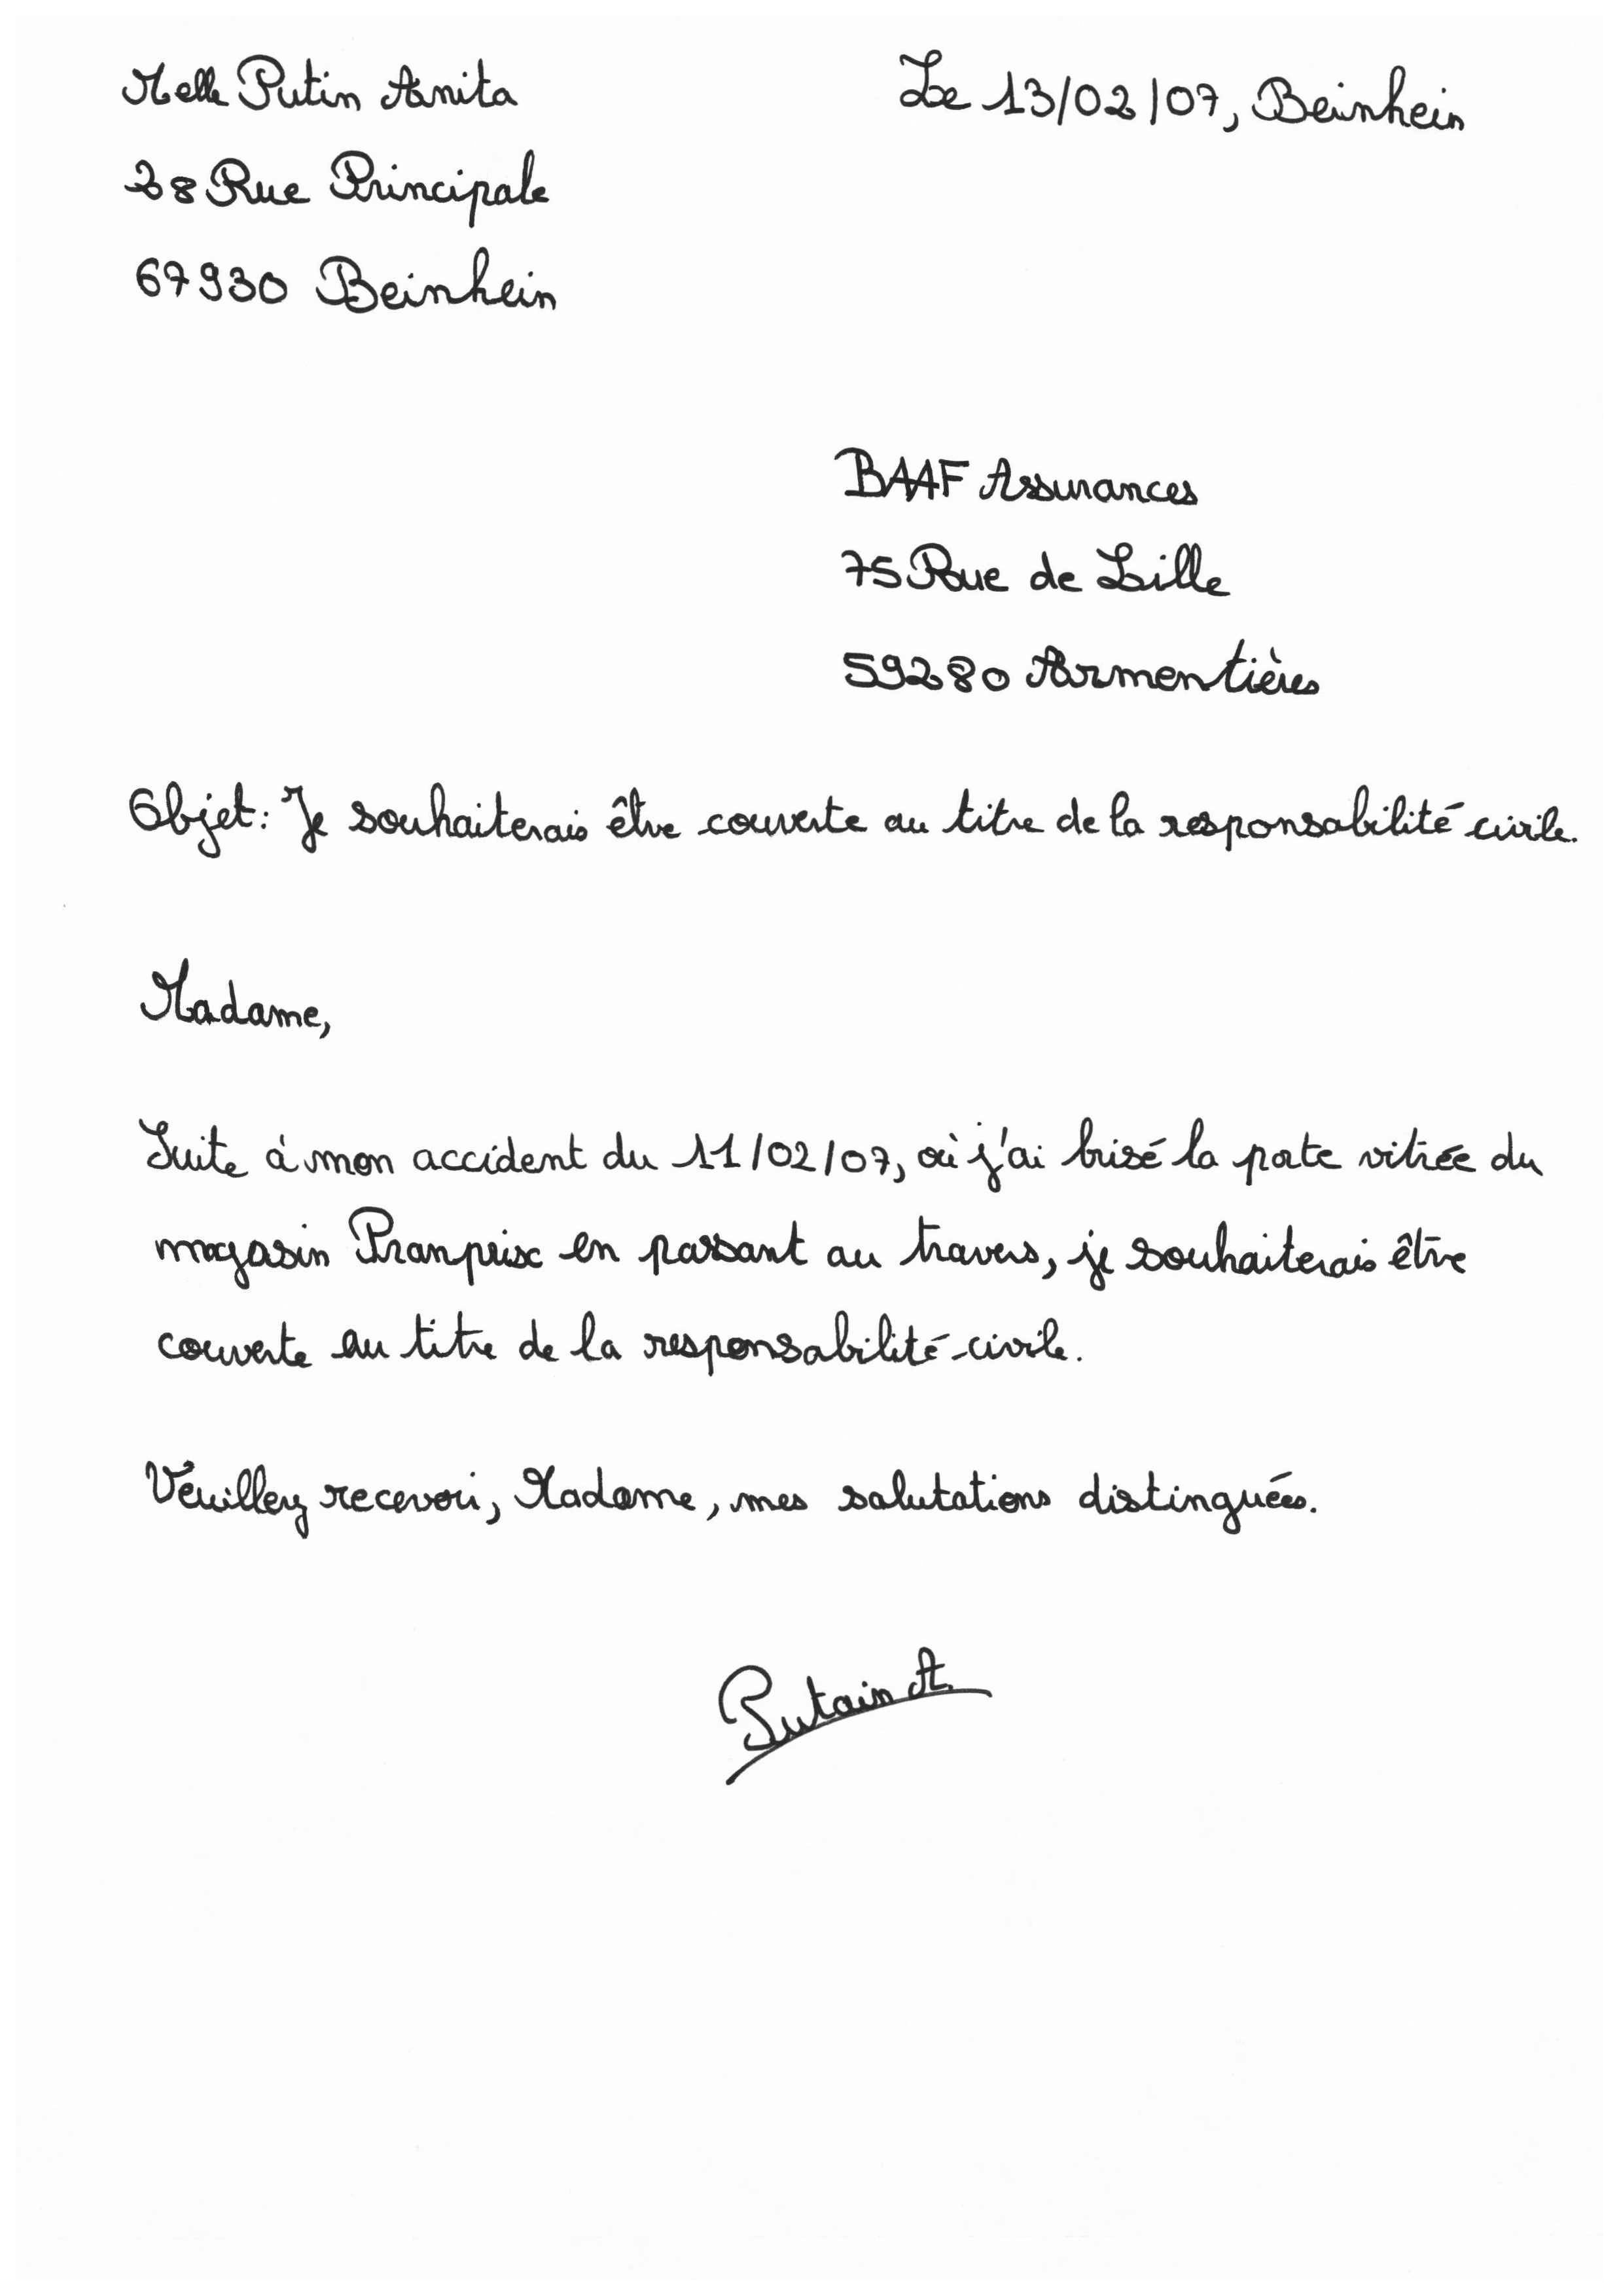 Melle Putin Anita
Le 13/02/07, Beinhein
28 Rue Principale
67930 Beinhein
BAAF Assurances
75 Rue de Lille
59280 Armentières
Objet: Je souhaiterais être couverte au titre de la responsabilité civile.
Madame,
Suite à mon accident du 11/02/07, où j'ai brisé la porte vitrée du
magasin Pranprix en passant au travers, je souhaiterais être
couverte au titre de la responsabilité-civile.
Veuillez recevoir, Madame, mes salutations distinguées.
Putain A.